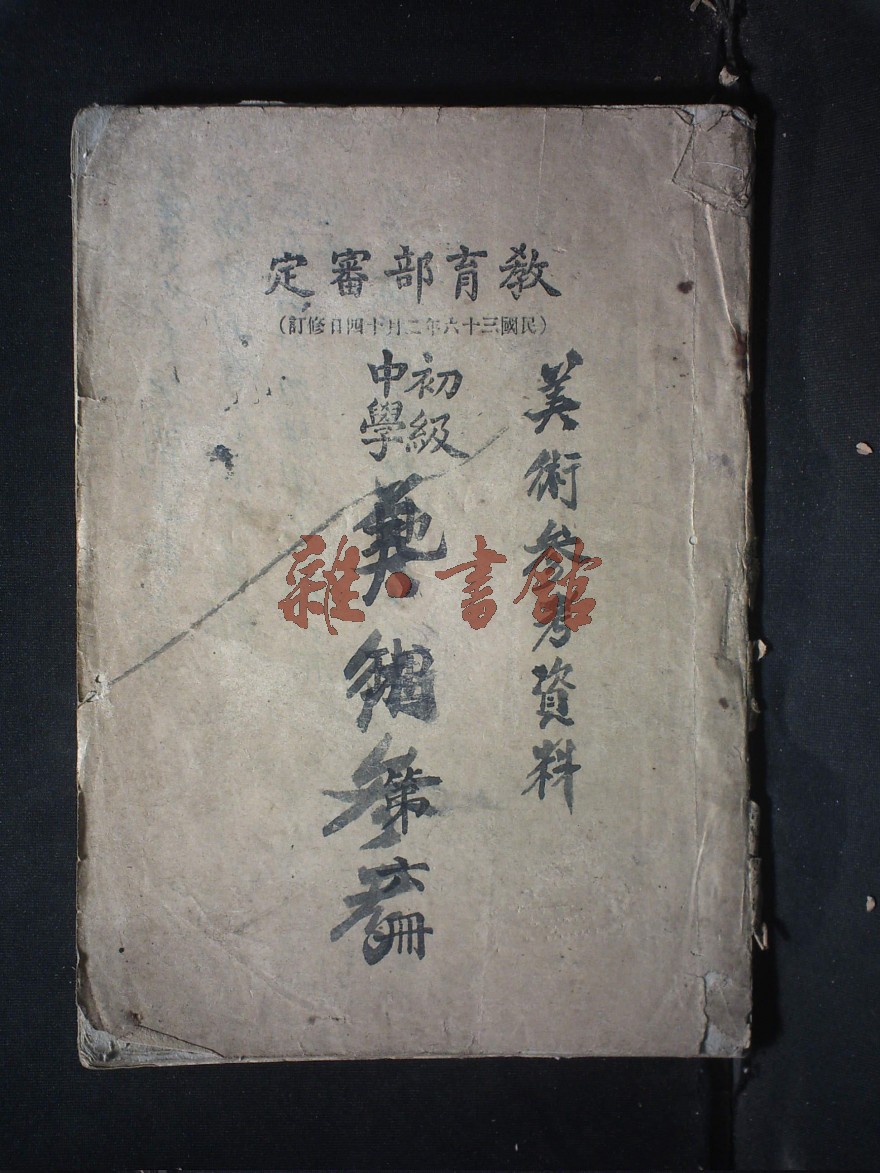 教育部審定
(民國三十六年二月十四日修訂)
美術參考資料
初級
中學
美術參考
第六冊
雜·書館